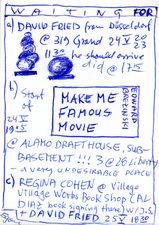 WAITING FOR
a) DAVID FRIED from Düsseldorf
@ 319 Grand 24 V 2023
11³⁰ he should arrive
did @ 12¹⁵
b) Start of
24 V
19
MAKE ME
FAMOUS
MOVIE
EDWARD
BREZINSKI
@ ALAMO DRAFTHOUSE, SUB-
BASEMENT!!! 3 @ 28 Liberty
- a very UNDESIRABLE PLACE
c) REGINA COHEN @ Village
Village Works Book Shop
DIAZ book signing
+ DAVID FRIED 25 V 18³⁰